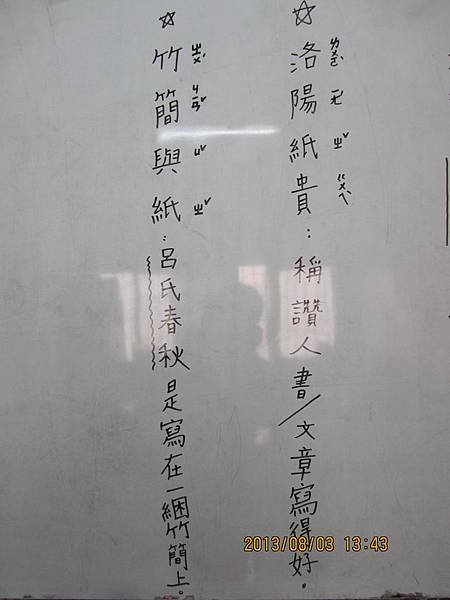 ☆洛陽紙貴：稱讚人書/文章寫得好。
ㄓˇ ㄍㄨㄟˋ
☆竹簡與紙：呂氏春秋是寫在一綑竹簡上。
ㄓㄨˊ ㄐㄧㄢˇ ㄩˇ ㄓˇ
2013/08/03 13:43